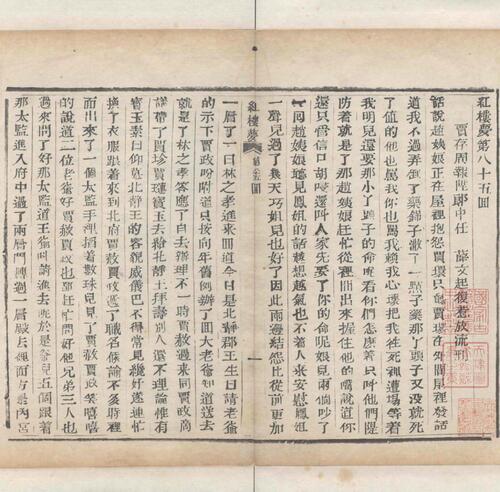 紅樓夢第八十五回
賈存周報陞郎中任　薛文起復惹放流刑
話說趙姨娘正在屋裡抱怨賈環只聽賈環在外間屋裡發話
道我不過弄倒了藥銱子灑了一點子藥那丫頭子又沒就死
了值的他也罵我你也罵我賴我心壞把我往死裡遭塌等着
我明兒還要那小丫頭子的命呢看你們怎麽着只叫他們隄
防着就是了那趙姨娘赶忙從裡間出來握住他的嘴說道你
還只管信口胡唚還叫人家先要了你的命呢娘兒兩個吵了
一回趙姨娘聽見鳳姐的話越想越氣也不着人來安慰鳳姐
一聲兒過了幾天巧姐兒也好了因此兩邊結怨比從前更加
紅樓夢　第八十五回　一
一層了一日林之孝進來回道今日是北靜郡王生日請老爺
的示下賈政吩咐道只按向年舊例辦了回大老爺知道送去
就是了林之孝答應了自去辦理不一時賈赦過來同賈政商
議帶了賈珍賈璉寶玉去給北靜王拜壽別人還不理論惟有
寶玉素日仰慕北靜王的容貌威儀巴不得常見纔好遂連忙
換了衣服跟着來到北府賈赦賈政遞了職名候諭不多時裡
面出來了一個太監手裡掐着數珠兒見了賈赦賈政笑嘻嘻
的說道二位老爺好賈赦賈政也都赶忙問好他兄弟三人也
過來問了好那太監道王爺叫請進去呢於是爺兒五個跟着
那太監進入府中過了兩層門轉過一層殿去裡面方是內宮